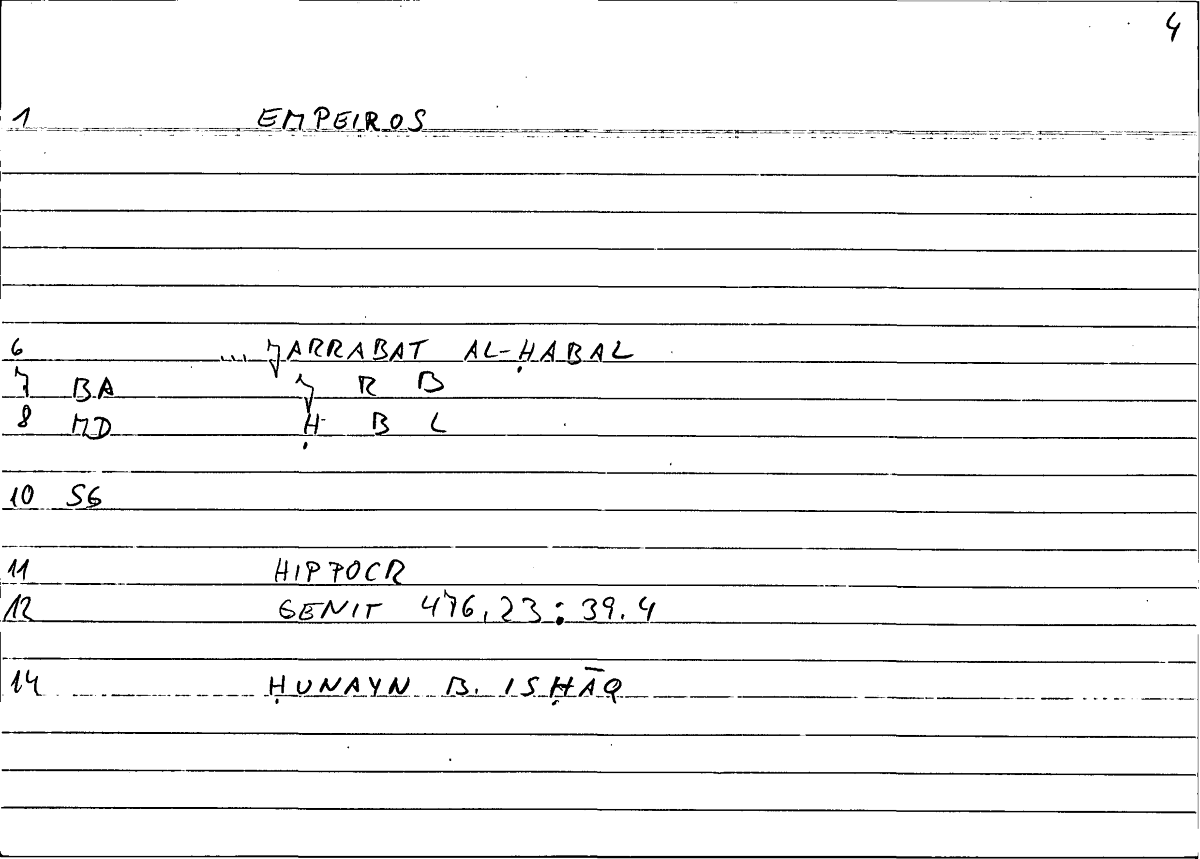 4
1 EMPEIROS
6 ... JARRABAT AL-ḤABAL
7 BA J R B
8 MD Ḥ B L
10 SG
11 HIPPOCR
12 GENIT 476,23 : 39.4
14 ḤUNAYN B. ISḤĀQ